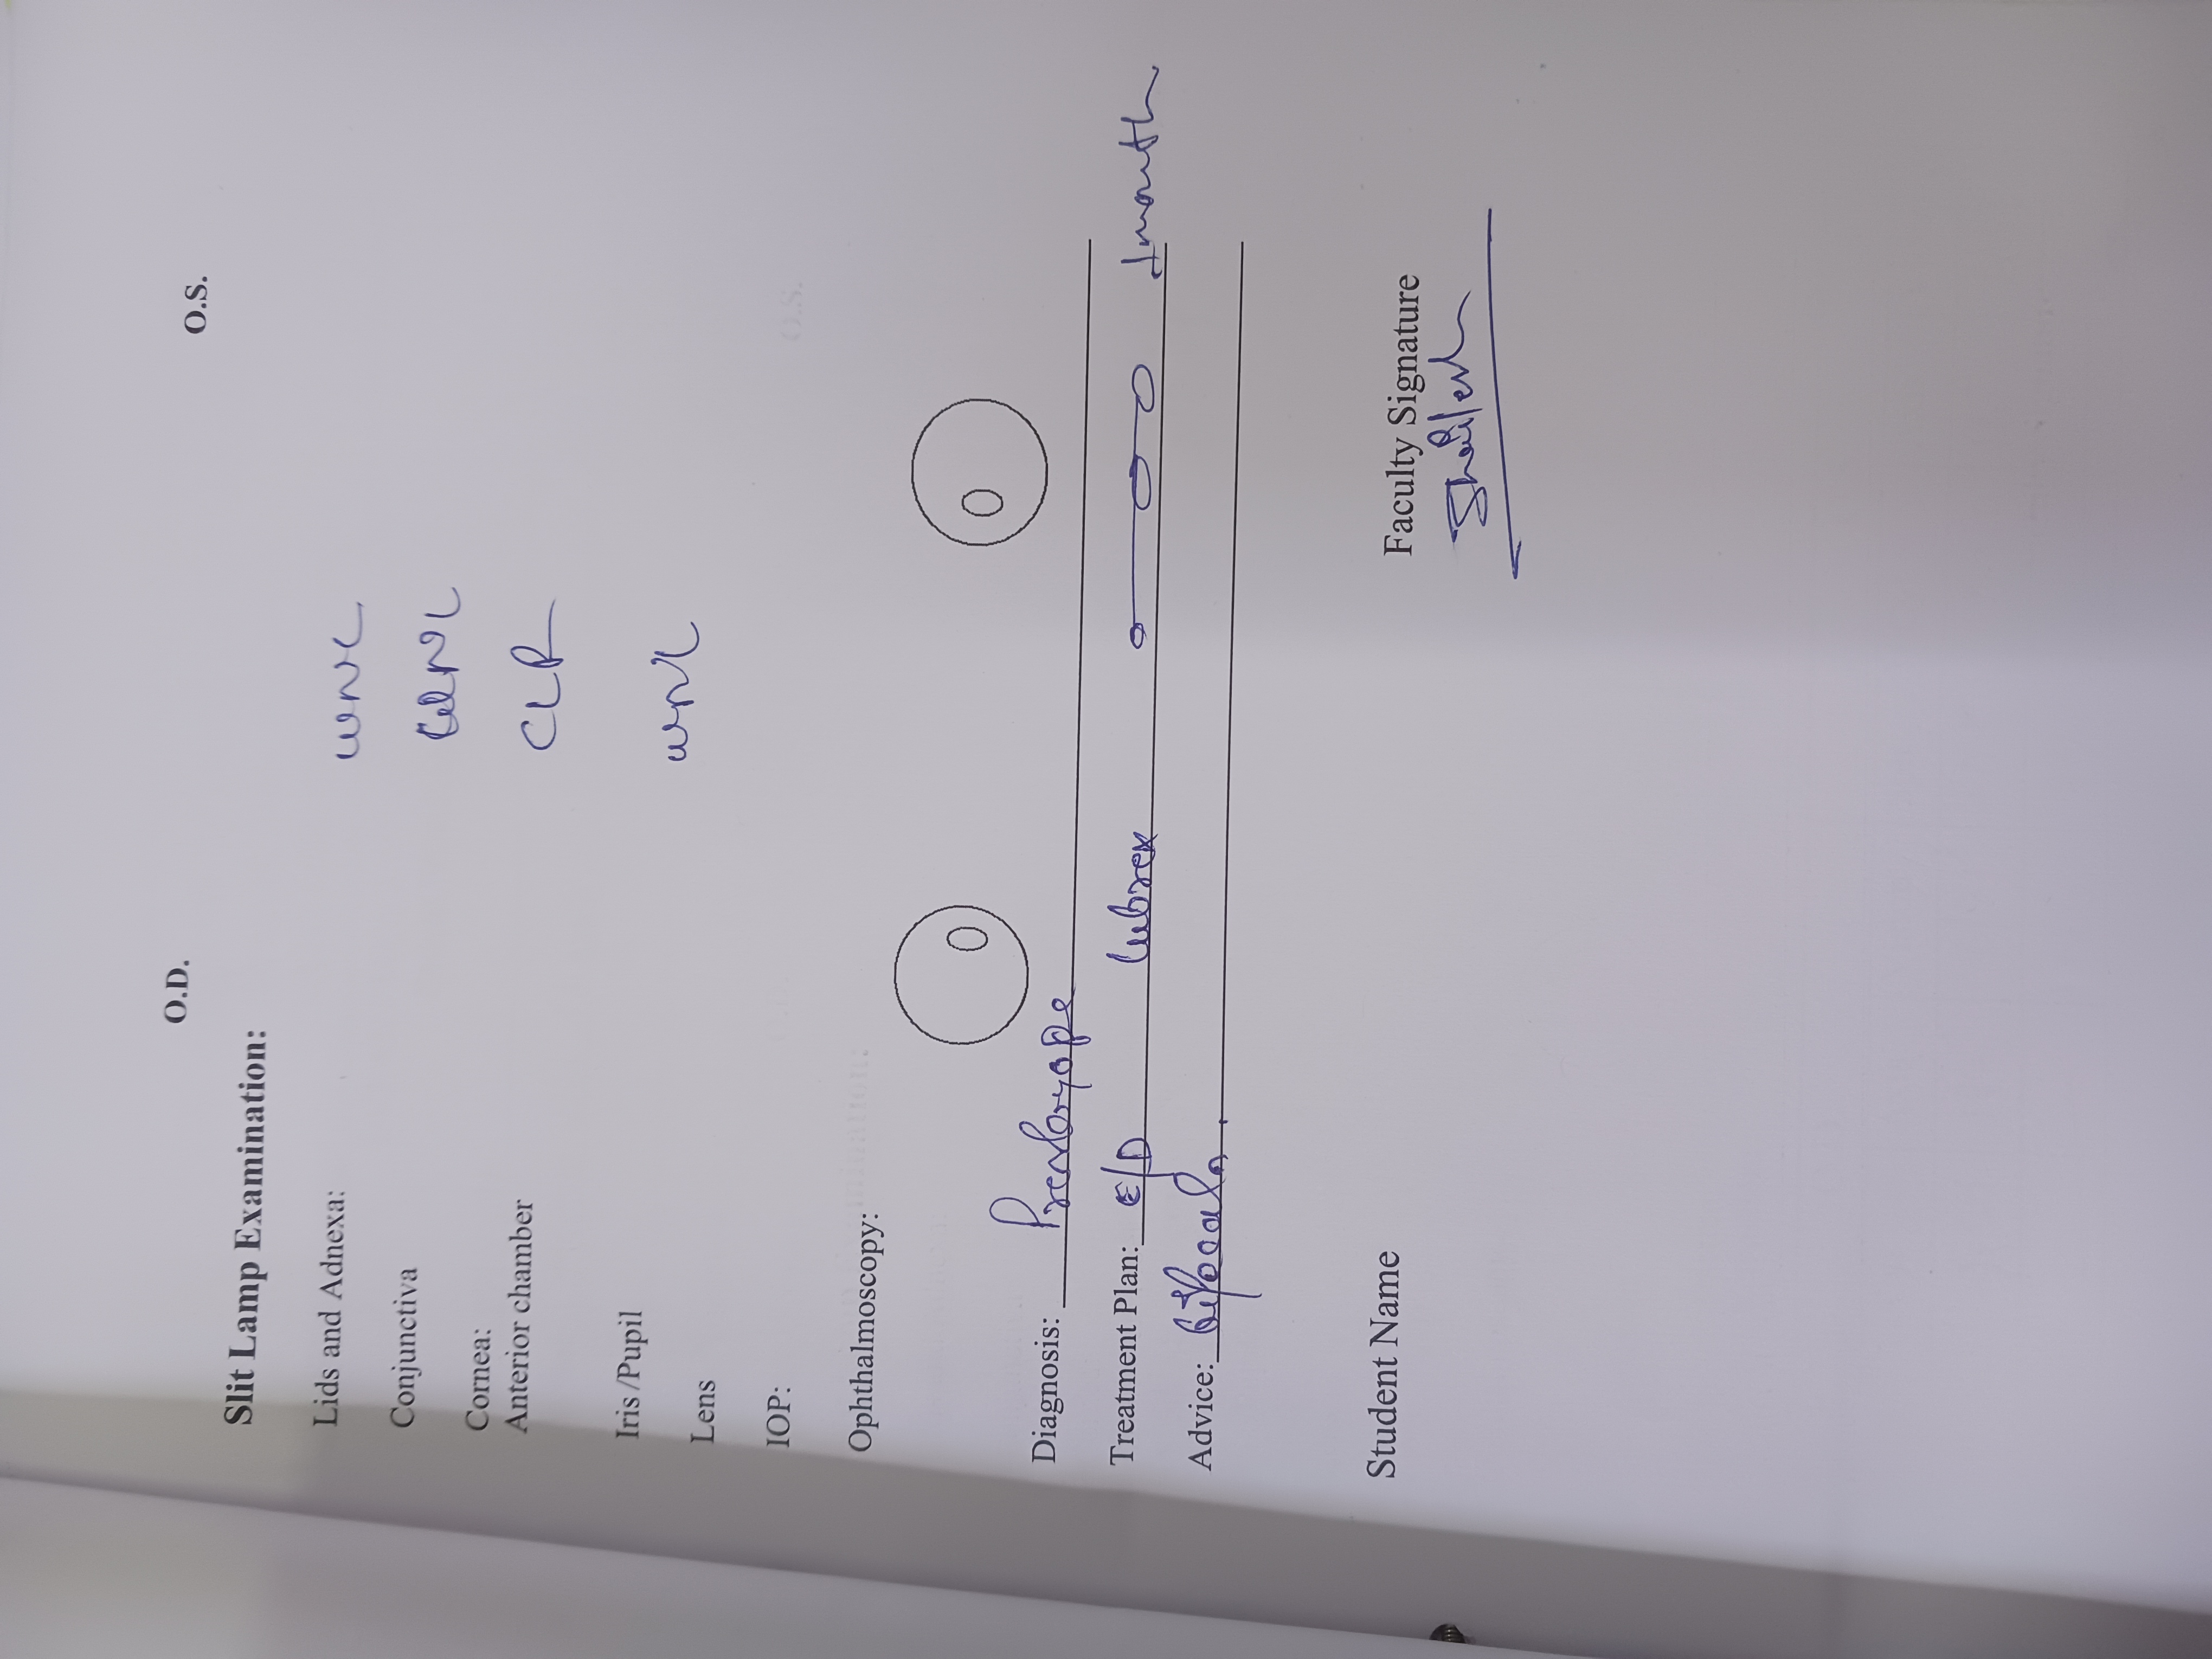 O.D. O.S.
Slit Lamp Examination:
Lids and Adnexa: WNL
Conjunctiva WNL
Cornea:
Anterior chamber CLR
Iris /Pupil WNL
Lens
IOP:
Ophthalmoscopy:
Diagnosis: Presbyope
Treatment Plan: E/D lubrex 1 month
Advice: bifocals.
Student Name Faculty Signature
Shailesh